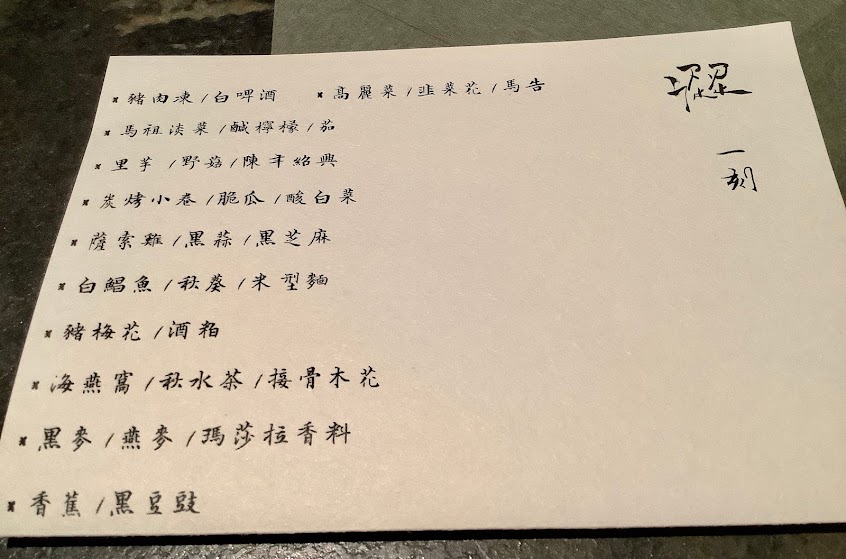 澀
一刻
豬肉凍/白啤酒　高麗菜/韭菜花/馬告
馬祖淡菜/鹹檸檬/茄
里芋/野菇/陳年紹興
炭烤小卷/脆瓜/酸白菜
薩索雞/黑蒜/黑芝麻
白鯧魚/秋葵/米型麵
豬梅花/酒粕
海燕窩/秋水茶/接骨木花
黑麥/燕麥/瑪莎拉香料
香蕉/黑豆豉